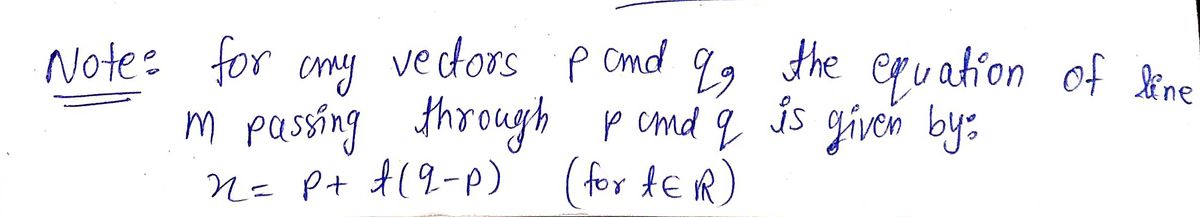 Note: for any vectors p and q, the equation of line
m passing through p and q is given by:
x = p + t(q-p) (for t ∈ ℝ)